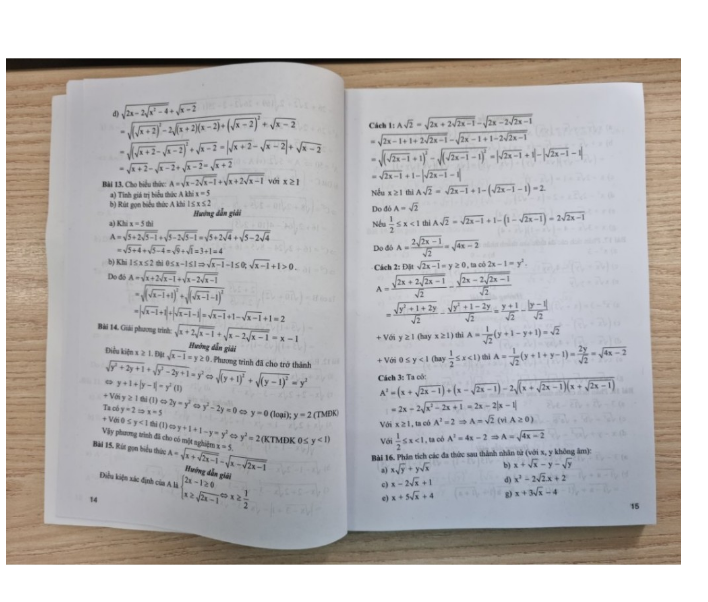 d) √(2x − 2√(x² − 4)) + √(x − 2)
= √((√(x + 2))² − 2√((x + 2)(x − 2)) + (√(x − 2))²) + √(x − 2)
= √((√(x + 2) − √(x − 2))²) + √(x − 2) = |√(x + 2) − √(x − 2)| + √(x − 2)
= √(x + 2) − √(x − 2) + √(x − 2) = √(x + 2)
Bài 13. Cho biểu thức: A = √(x − 2√(x − 1)) + √(x + 2√(x − 1)) với x ≥ 1
a) Tính giá trị biểu thức A khi x = 5
b) Rút gọn biểu thức A khi 1 ≤ x ≤ 2
Hướng dẫn giải
a) Khi x = 5 thì
A = √(5 + 2√(5 − 1)) + √(5 − 2√(5 − 1)) = √(5 + 2√4) + √(5 − 2√4)
= √(5 + 4) + √(5 − 4) = √9 + √1 = 3 + 1 = 4
b) Khi 1 ≤ x ≤ 2 thì 0 ≤ x − 1 ≤ 1 ⇒ √(x − 1) − 1 ≤ 0; √(x − 1) + 1 > 0.
Do đó A = √(x + 2√(x − 1)) + √(x − 2√(x − 1))
= √((√(x − 1) + 1)²) + √((√(x − 1) − 1)²)
= |√(x − 1) + 1| + |√(x − 1) − 1| = √(x − 1) + 1 − √(x − 1) + 1 = 2
Bài 14. Giải phương trình: √(x + 2√(x − 1)) + √(x − 2√(x − 1)) = x − 1
Hướng dẫn giải
Điều kiện x ≥ 1. Đặt √(x − 1) = y ≥ 0. Phương trình đã cho trở thành
√(y² + 2y + 1) + √(y² − 2y + 1) = y² ⇔ √((y + 1)²) + √((y − 1)²) = y²
⇔ y + 1 + |y − 1| = y² (1)
+ Với y ≥ 1 thì (1) ⇔ 2y = y² ⇔ y² − 2y = 0 ⇔ y = 0 (loại); y = 2 (TMĐK)
Ta có y = 2 ⇒ x = 5
+ Với 0 ≤ y < 1 thì (1) ⇔ y + 1 + 1 − y = y² ⇔ y² = 2 (KTMĐK 0 ≤ y < 1)
Vậy phương trình đã cho có một nghiệm x = 5.
Bài 15. Rút gọn biểu thức A = √(x + √(2x − 1)) − √(x − √(2x − 1))
Hướng dẫn giải
Điều kiện xác định của A là { 2x − 1 ≥ 0; x ≥ √(2x − 1) ⇔ x ≥ 1/2
14
Cách 1: A√2 = √(2x + 2√(2x − 1)) − √(2x − 2√(2x − 1))
= √(2x − 1 + 1 + 2√(2x − 1)) − √(2x − 1 + 1 − 2√(2x − 1))
= √((√(2x − 1) + 1)²) − √((√(2x − 1) − 1)²) = |√(2x − 1) + 1| − |√(2x − 1) − 1|
= √(2x − 1) + 1 − |√(2x − 1) − 1|
Nếu x ≥ 1 thì A√2 = √(2x − 1) + 1 − (√(2x − 1) − 1) = 2.
Do đó A = √2
Nếu 1/2 ≤ x < 1 thì A√2 = √(2x − 1) + 1 − (1 − √(2x − 1)) = 2√(2x − 1)
Do đó A = 2√(2x − 1)/√2 = √(4x − 2)
Cách 2: Đặt √(2x − 1) = y ≥ 0, ta có 2x − 1 = y².
A = √(2x + 2√(2x − 1))/√2 − √(2x − 2√(2x − 1))/√2
= √(y² + 1 + 2y)/√2 − √(y² + 1 − 2y)/√2 = (y + 1)/√2 − |y − 1|/√2
+ Với y ≥ 1 (hay x ≥ 1) thì A = 1/√2 (y + 1 − y + 1) = √2
+ Với 0 ≤ y < 1 (hay 1/2 ≤ x < 1) thì A = 1/√2 (y + 1 + y − 1) = 2y/√2 = √(4x − 2)
Cách 3: Ta có:
A² = (x + √(2x − 1)) + (x − √(2x − 1)) − 2√((x + √(2x − 1))(x − √(2x − 1)))
= 2x − 2√(x² − 2x + 1) = 2x − 2|x − 1|
Với x ≥ 1, ta có A² = 2 ⇒ A = √2 (vì A ≥ 0)
Với 1/2 ≤ x < 1, ta có A² = 4x − 2 ⇒ A = √(4x − 2)
Bài 16. Phân tích các đa thức sau thành nhân tử (với x, y không âm):
a) x√y + y√x b) x + √x − y − √y
c) x − 2√x + 1 d) x² − 2√2.x + 2
e) x + 5√x + 4 g) x + 3√x − 4
15